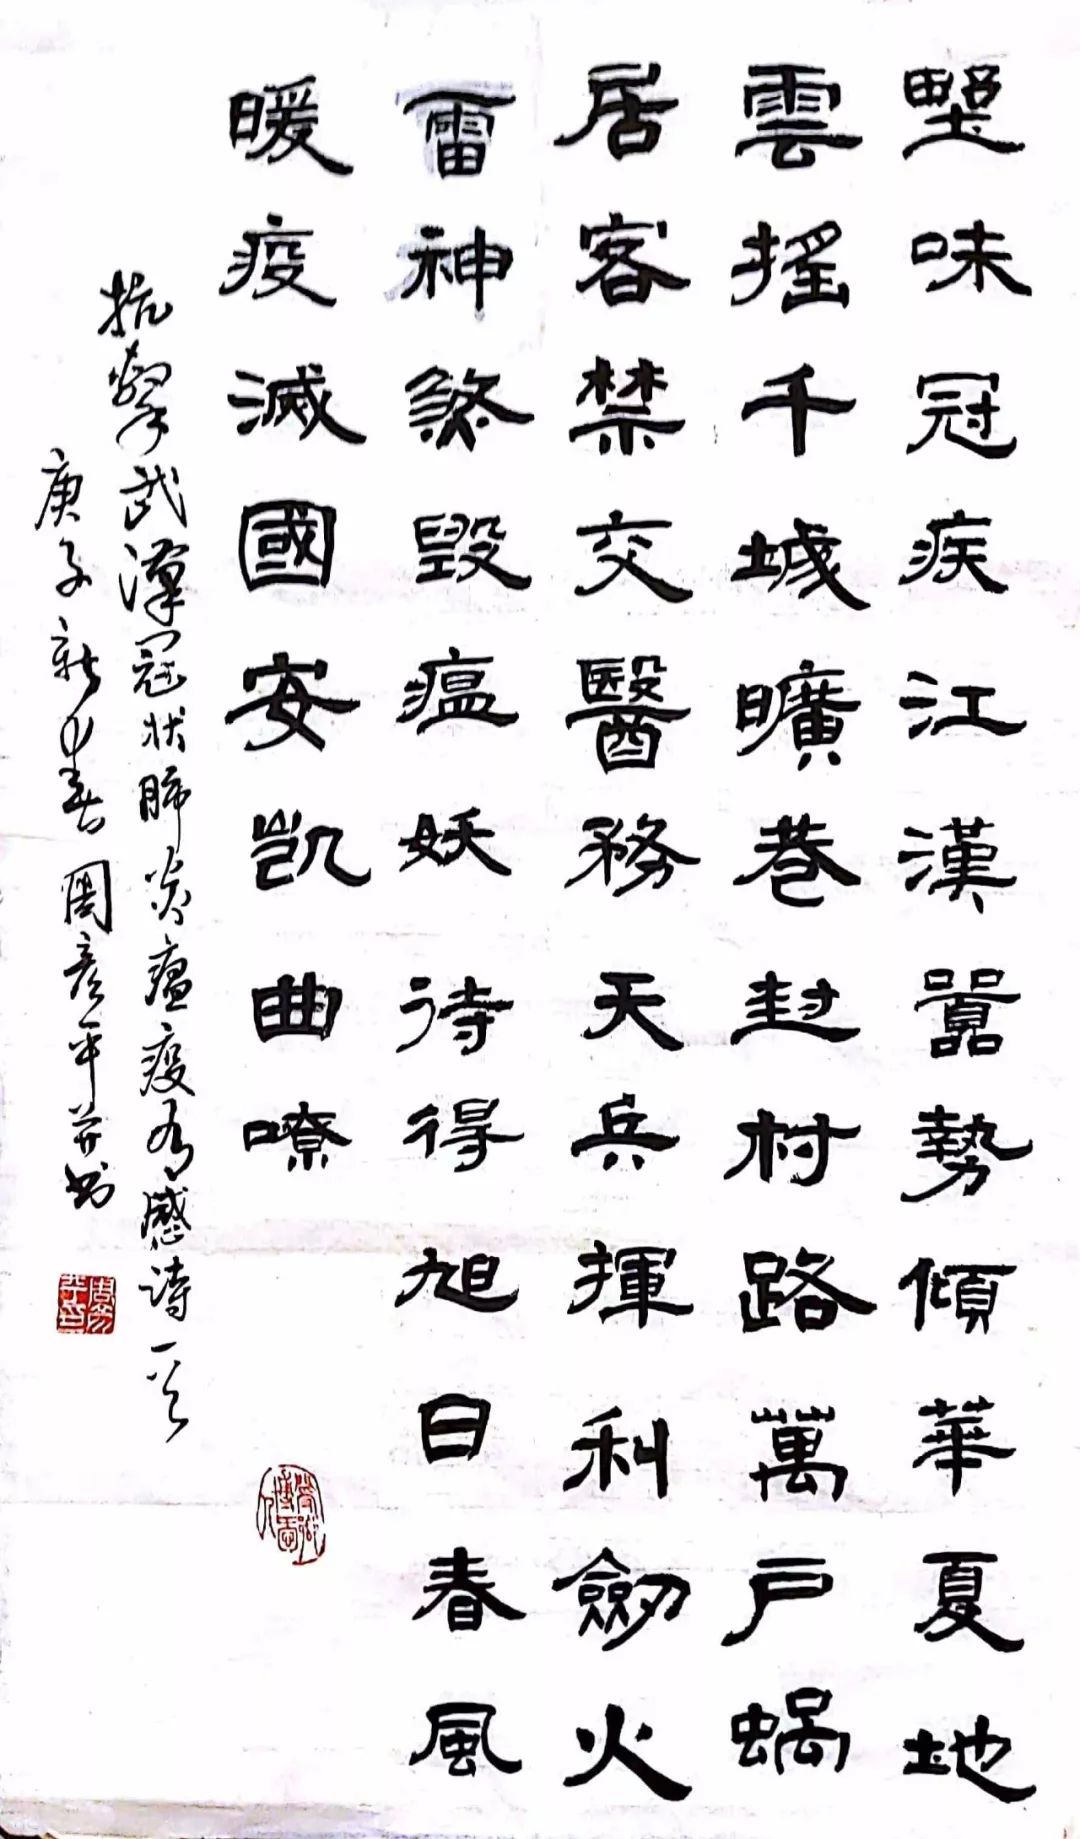 野味冠疾江漢囂勢傾華夏地
雲搖千城曠巷封村路萬戶蝸
居客禁交醫務天兵揮利劍火
雷神煞毀瘟妖待得旭日春風
暖疫滅國安凱曲嘹
抗擊武漢冠狀肺炎瘟疫有感詩一首
庚子新春周彥平并書